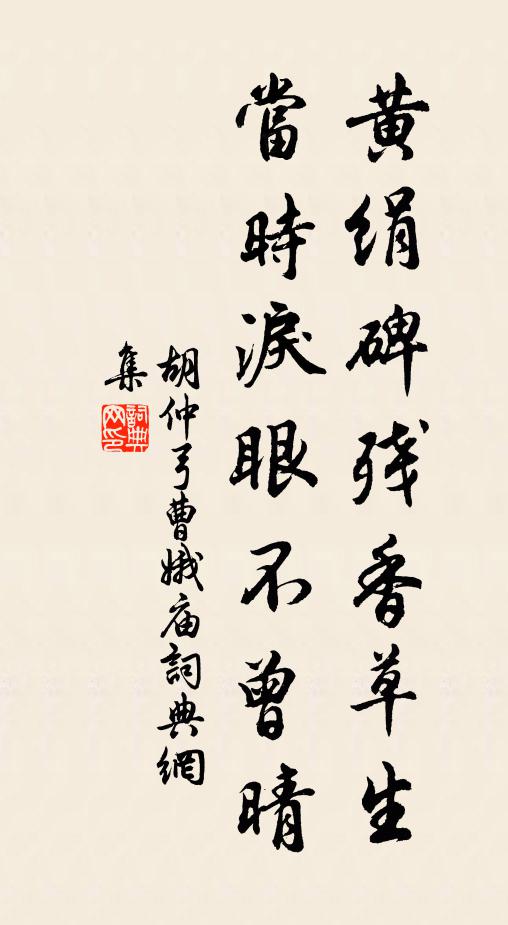 黄绢碑残香草生
當時淚眼不曾晴
胡仲弓曹娥庙詞典網
集
詞典网印